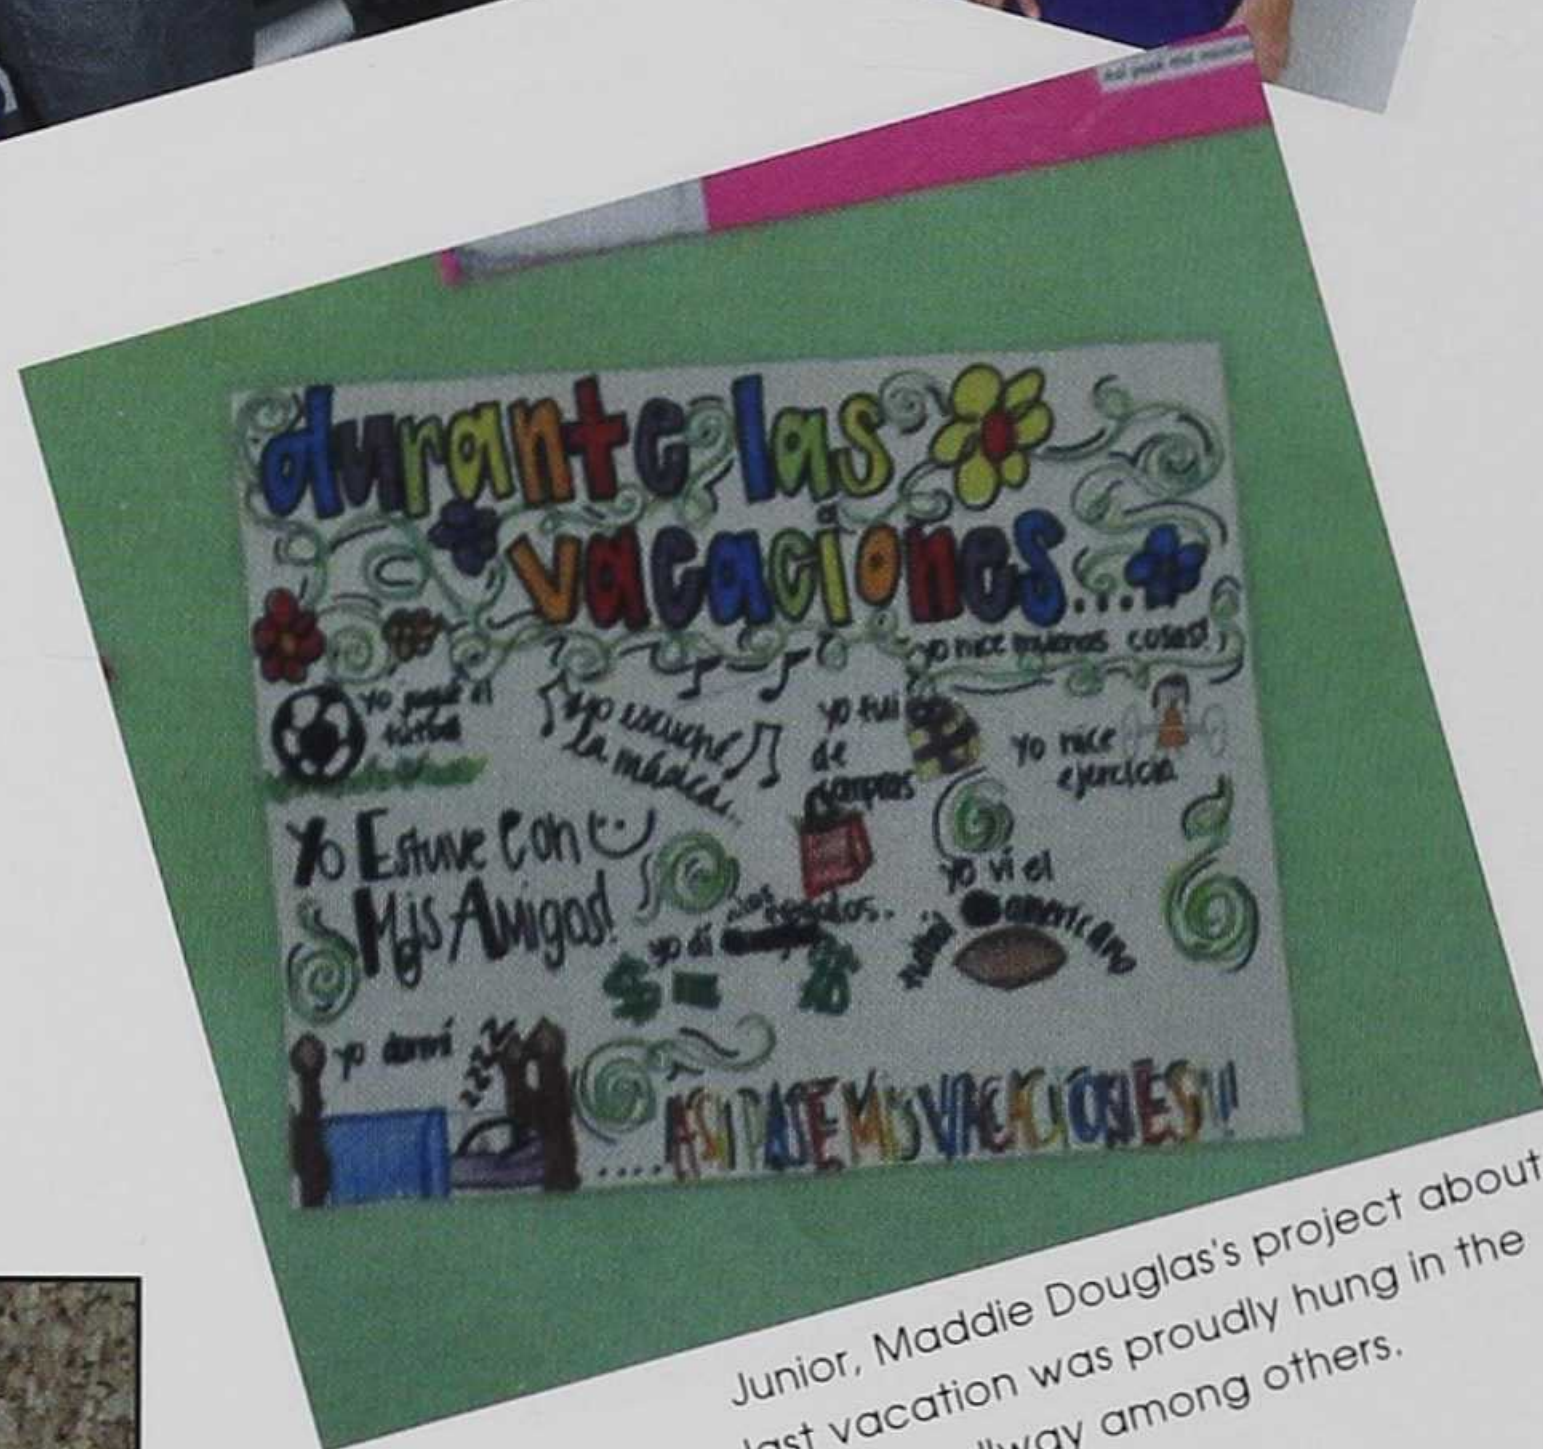 durante las
vacaciones...
yo hice muchas cosas!
Yo jugué el
fútbol
yo escuché
la música.
yo fui
de
compras
Yo hice
ejercicio
Yo Estuve Con
Mis Amigos!
yo dí los regalos.
$ =
yo ví el
fútbol americano
yo dormí
zzzz
....ASÍ PASE MIS VACACIONES!!!
Junior, Maddie Douglas's project about
last vacation was proudly hung in the
among others.